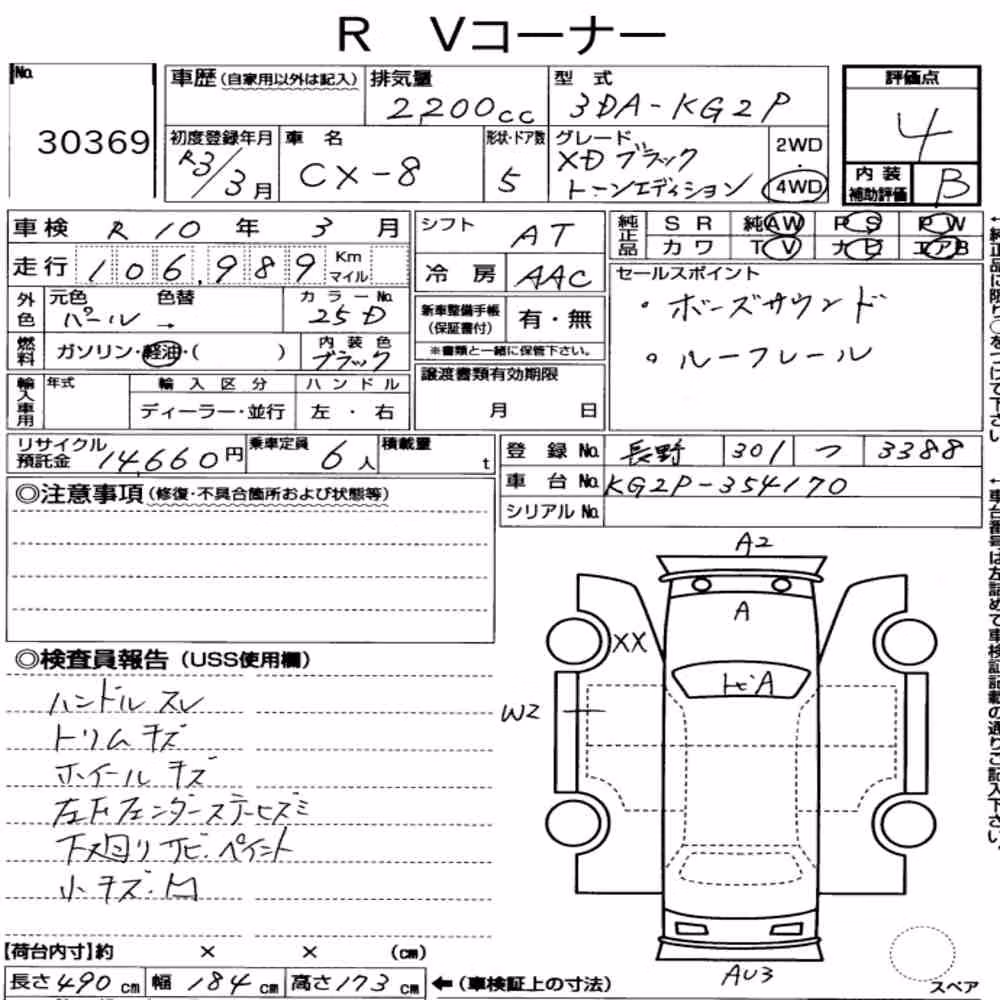 R Vコーナー
No. 30369
車歴(自家用以外は記入) 排気量 2200cc 型式 3DA-KG2P
評価点 4
初度登録年月 R3/3月 車名 CX-8 形状・ドア数 5 グレード XD ブラック トーンエディション 2WD 4WD
内装補助評価 B
車検 R 10 年 3 月
シフト AT
純正品 SR 純AW PS PW
カワ TV ナビ エアB
走行 106,989 Km マイル
冷房 AAC
セールスポイント
・ボーズサウンド
・ルーフレール
外色 元色 パール 色替 → カラーNo. 25D
新車整備手帳(保証書付) 有・無
※書類と一緒に保管下さい。
燃料 ガソリン・軽油・( ) 内装色 ブラック
輸入車用 年式 輸入区分 ハンドル
ディーラー・並行 左・右
譲渡書類有効期限
月 日
リサイクル預託金 14,660円 乗車定員 6人 積載量 t
登録No. 長野 301 つ 3388
車台No. KG2P-354170
シリアルNo.
◎注意事項(修復・不具合箇所および状態等)
◎検査員報告(USS使用欄)
ハンドルスレ
トリムキズ
ホイールキズ
左Fフェンダーステーヒズミ
下廻りサビ・ペイント
小キズ・凹
A2
A
XX
トビA
W2
AU3
スペア
【荷台内寸】約 × × (cm)
長さ490cm 幅184cm 高さ173cm ←(車検証上の寸法)
←純正品に限り○をつけて下さい。
←車台番号は左詰めで車検証記載の通りご記入下さい。